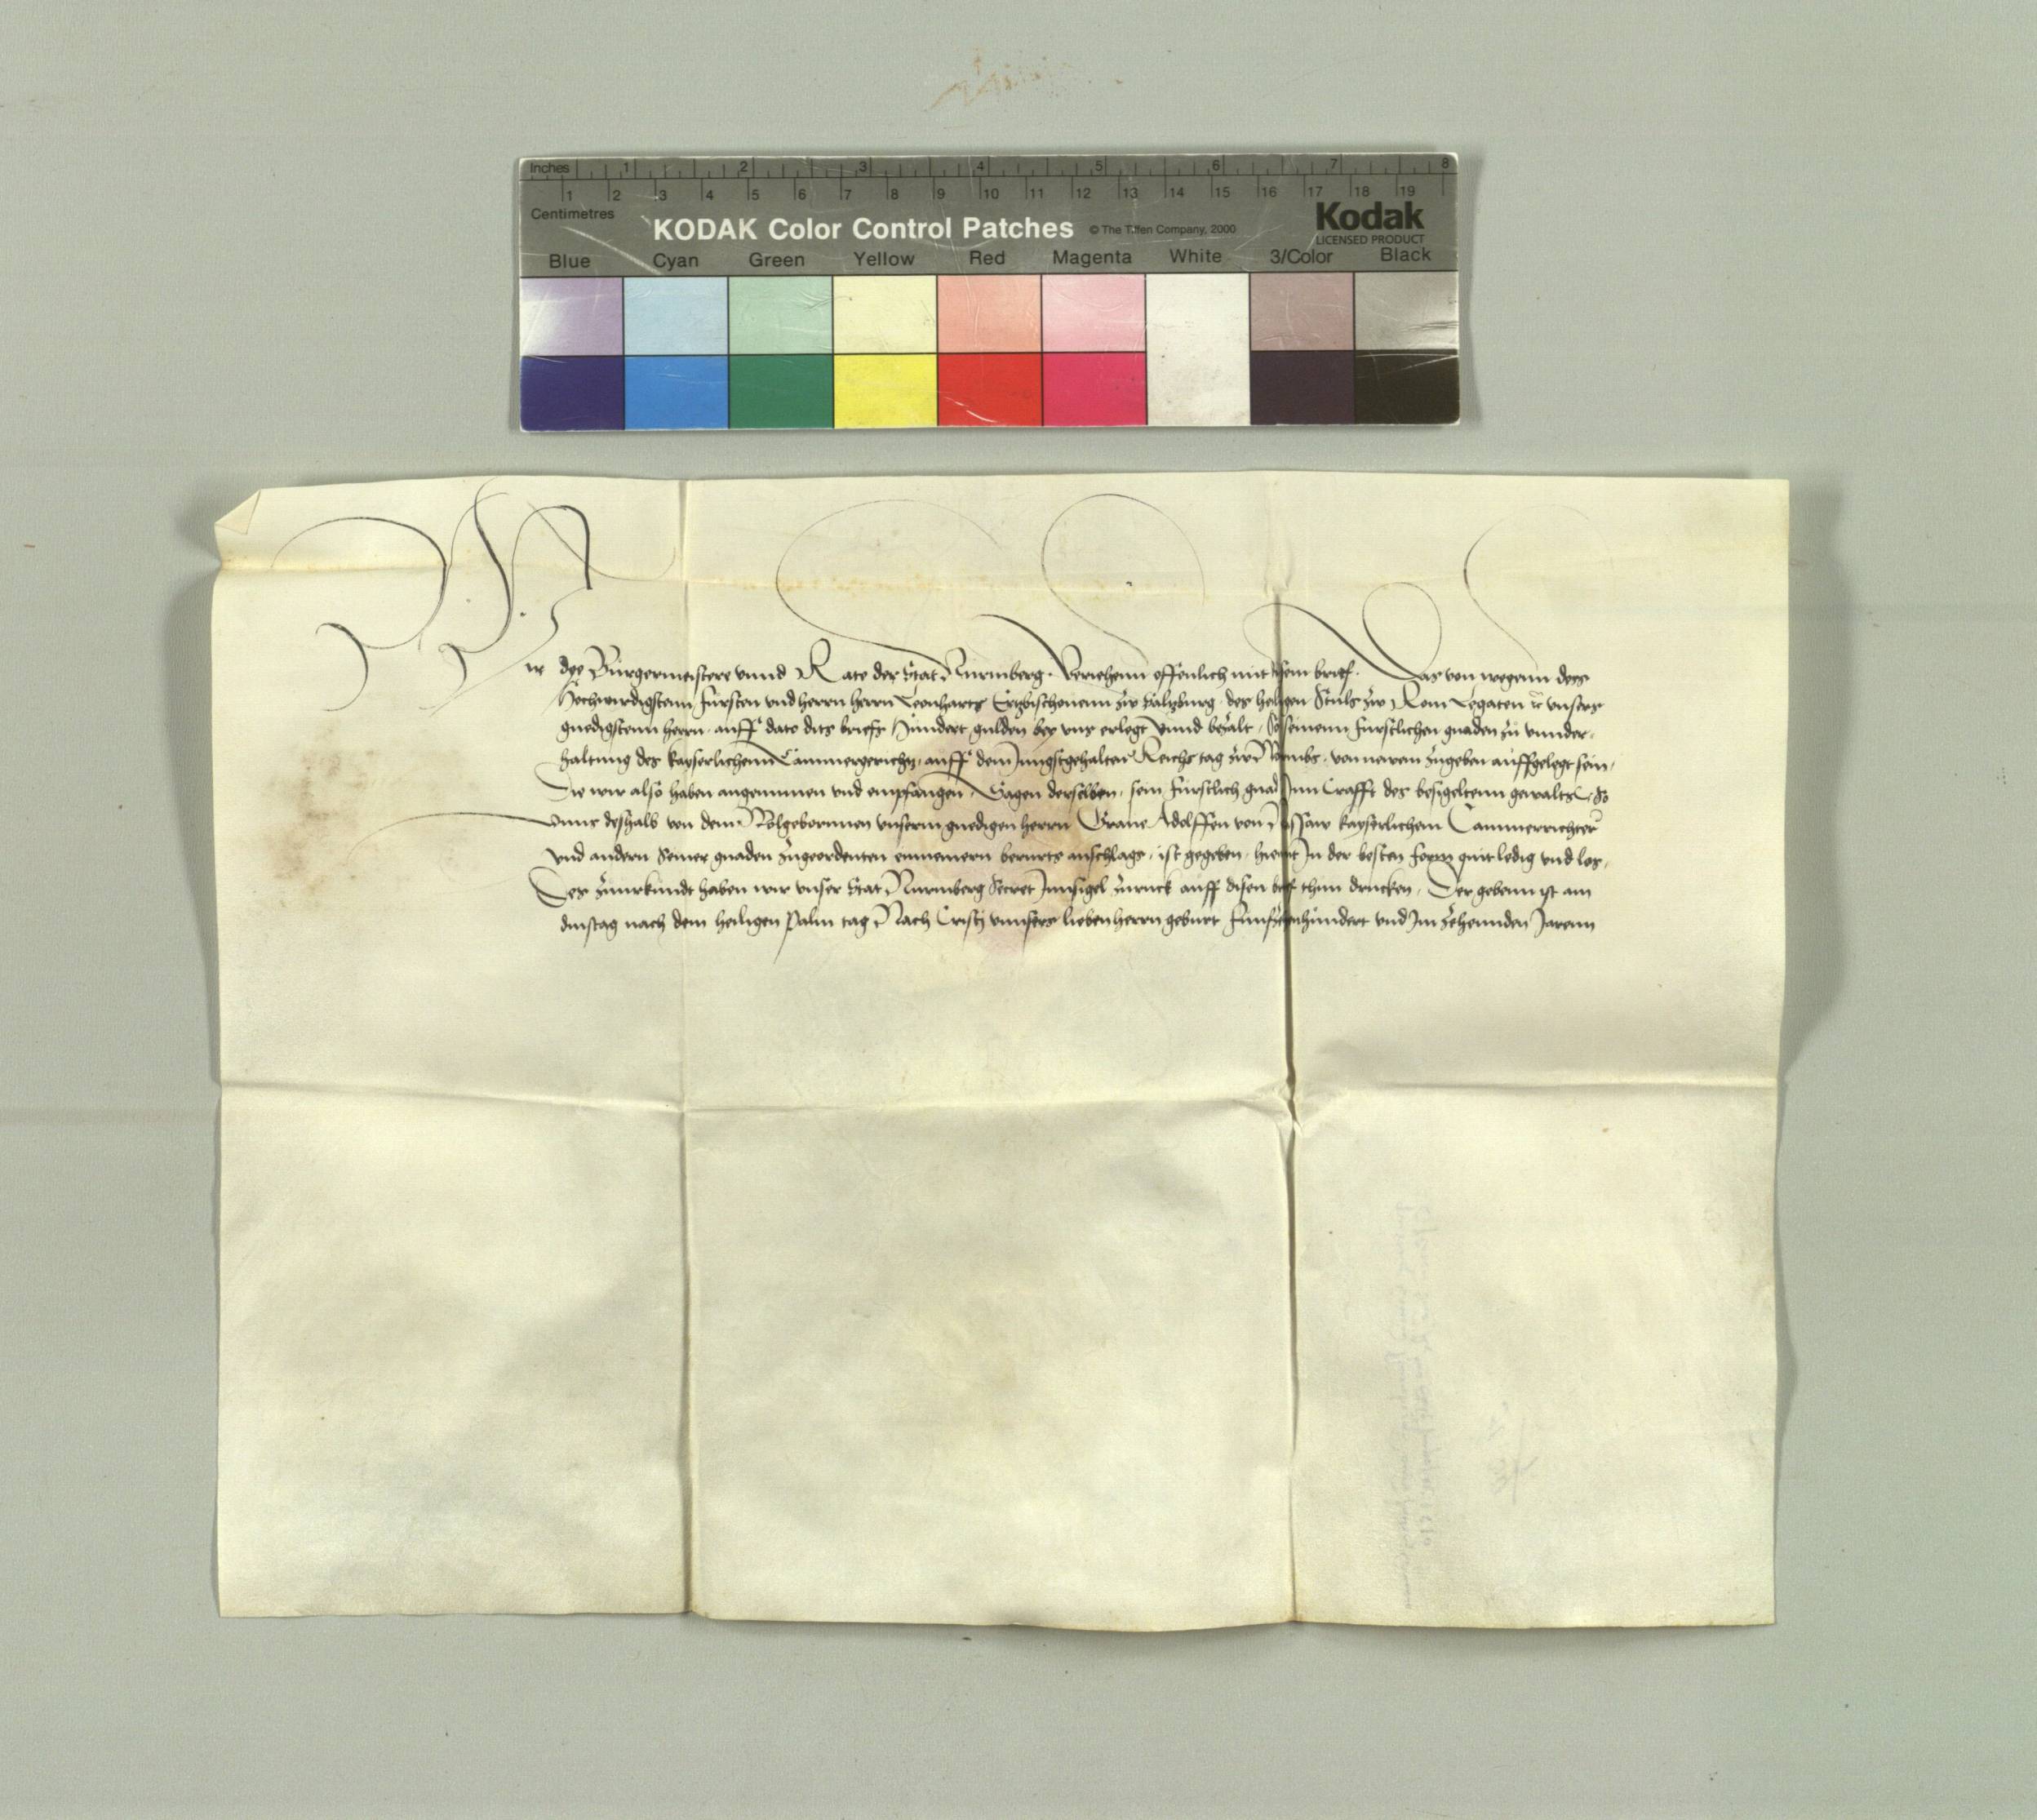 Inches 1 2 3 4 5 6 7 8
1 2 3 4 5 6 7 8 9 10 11 12 13 14 15 16 17 18 19
Centimetres
KODAK Color Control Patches © The Tiffen Company, 2000 Kodak
LICENSED PRODUCT
Blue Cyan Green Yellow Red Magenta White 3/Color Black
Wir dye Burgermeistere vnnd Rate der Stat Nurmberg. Veriehenn offenlich mit disem brief. Das von wegenn des
Hochwirdigstenn fursten vnd herrn herrn Leonharts Ertzbischouenn zw Saltzburg des heiligen Stuls zw Rom Legaten vnsers
gnedigstenn herrn auff dato dits briefs Hundert gulden bey vns erlegt vnnd betzalt, So seinenn furstlichen gnaden zu vnnder-
haltung des kayserlichenn Cammergerichtz, auff dem Jungstgehalten Reichs tag zw Wormbs, von newem zugeben auffgelegt sein,
Die wir also haben angenummen vnd empfangen, Sagen derselben, sein furstlich gnad Inn Crafft des besigeltenn gewalts, So
vnns deshalb von dem Wolgebornnen vnserm gnedigen herrn Graue Adolffen von Nassaw kayserlichem Cammerrichter
vnd andern Seiner gnaden zugeordenten einnemern berurts anschlags, ist gegeben, hiemit In der besten form quit ledig vnd los,
Des zuurkundt haben wir vnser Stat Nurmberg Secret Innsigel zuruck auff disen brief thun drucken, Der gebenn ist am
dinstag nach dem heiligen Palm tag Nach Cristj vnnsers lieben herrn geburt funfzehenhundert vnd Im zehennden Jarenn